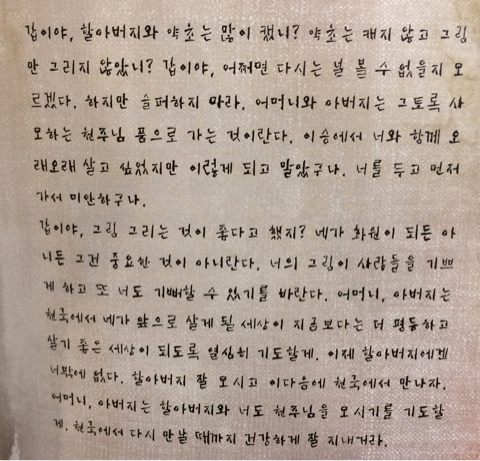 갑이야, 할아버지와 약초는 많이 캤니? 약초는 캐지 않고 그림
만 그리지 않았니? 갑이야, 어쩌면 다시는 널 볼 수 없을지 모
르겠다. 하지만 슬퍼하지 마라. 어머니와 아버지는 그토록 사
모하는 천주님 품으로 가는 것이란다. 이승에서 너와 함께 오
래오래 살고 싶었지만 이렇게 되고 말았구나. 너를 두고 먼저
가서 미안하구나.
갑이야, 그림 그리는 것이 좋다고 했지? 네가 화원이 되든 아
니든 그건 중요한 것이 아니란다. 너의 그림이 사람들을 기쁘
게 하고 또 너도 기뻐할 수 있기를 바란다. 어머니, 아버지는
천국에서 네가 앞으로 살게 될 세상이 지금보다는 더 평등하고
살기 좋은 세상이 되도록 열심히 기도할게. 이제 할아버지에겐
너밖에 없다. 할아버지 잘 모시고 이다음에 천국에서 만나자.
어머니, 아버지는 할아버지와 너도 천주님을 모시기를 기도할
게. 천국에서 다시 만날 때까지 건강하게 잘 지내거라.